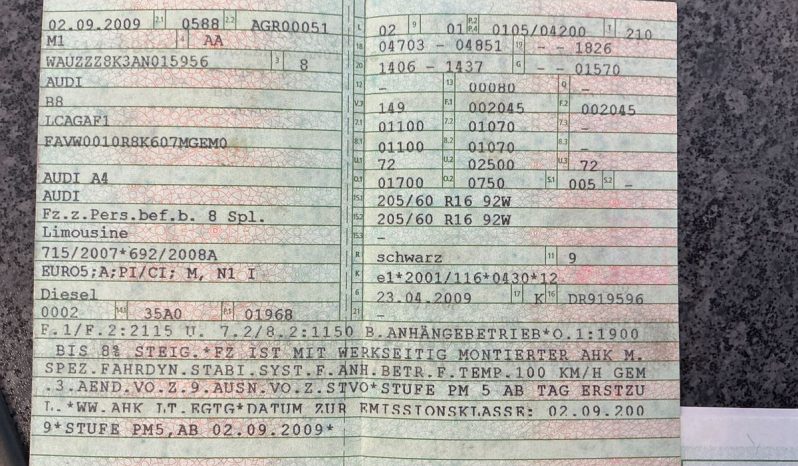 02.09.2009 2.1 0588 2.2 AGR00051
M1 4 AA
WAUZZZ8K3AN015956 3 8
AUDI
B8
LCAGAF1
FAVW0010R8K607MGEM0
AUDI A4
AUDI
Fz.z.Pers.bef.b. 8 Spl.
Limousine
715/2007*692/2008A
EURO5;A;PI/CI; M, N1 I
Diesel
0002 35A0 P.1 01968
L 02 9 01 P.2 P.4 0105/04200 T 210
18 04703 - 04851 19 - - 1826
20 1406 - 1437 G - - 01570
12 - 13 00080 Q -
V.7 149 F.1 002045 F.2 002045
7.1 01100 7.2 01070 7.3 -
8.1 01100 8.2 01070 8.3 -
U.1 72 U.2 02500 U.3 72
O.1 01700 O.2 0750 S.1 005 S.2 -
15.1 205/60 R16 92W
15.2 205/60 R16 92W
15.3 -
R schwarz 11 9
K e1*2001/116*0430*12
6 23.04.2009 17 K 16 DR919596
21 -
F.1/F.2:2115 U. 7.2/8.2:1150 B.ANHÄNGEBETRIEB*O.1:1900
BIS 8% STEIG.*FZ IST MIT WERKSEITIG MONTIERTER AHK M.
SPEZ.FAHRDYN.STABI.SYST.F.ANH.BETR.F.TEMP.100 KM/H GEM
.3.AEND.VO.Z.9.AUSN.VO.Z.STVO*STUFE PM 5 AB TAG ERSTZU
L.*WW.AHK LT.EGTG*DATUM ZUR EMISSIONSKLASSE: 02.09.200
9*STUFE PM5,AB 02.09.2009*